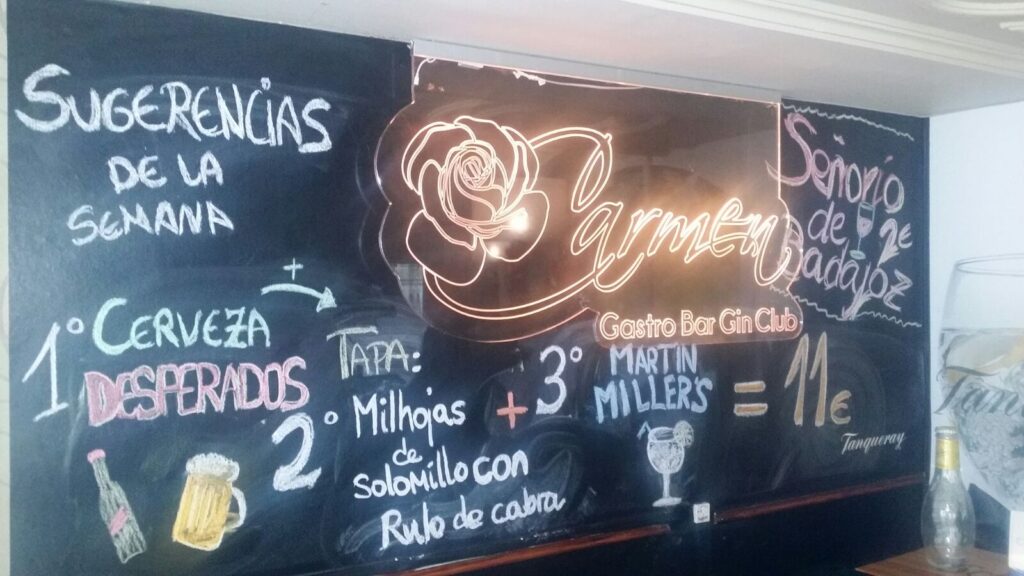 SUGERENCIAS
DE LA
SEMANA
+
1º CERVEZA
DESPERADOS
2º TAPA:
Milhojas
de
solomillo con
Rulo de cabra
+ 3º MARTIN
MILLER'S
= 11€
Carmen
Gastro Bar Gin Club
Señorío
de
Badajoz
2€
Tanqueray